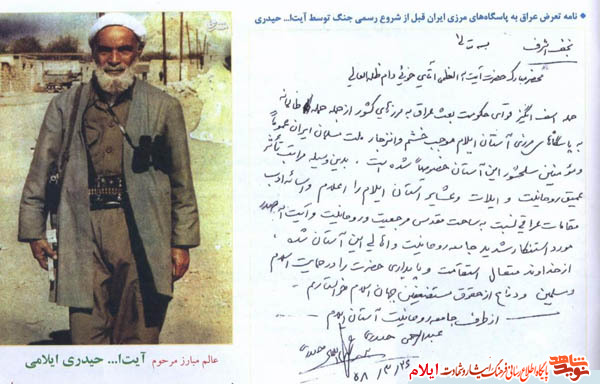 نامه تعرض عراق به پاسگاه‌های مرزی ایران قبل از شروع رسمی جنگ توسط آیت‌ا... حیدری
بسمه تعالی
نجف اشرف
محضر مبارک حضرت آیت الله العظمی آقای خوئی دام ظله العالی
حمله اسف انگیز قوای حکومت بعث عراق به مرزهای کشور از جمله حمله ظالمانه
به پاسگاههای مرزی آستان ایلام موجب خشم و انزجار ملت مسلمان ایران عموماً
و مؤمنین سلحشور این آستان خصوصاً شده است. بدین وسیله مراتب تأثر
عمیق روحانیت و ایلات و عشایر استان ایلام را اعلام و اسائه ادب
مقامات عراقی نسبت به ساحت مقدس مرجعیت و روحانیت و آیت الله صدر
مورد استنکار شدید جامعه روحانیت و اهالی این آستان شده.
از خداوند متعال استقامت و پایداری حضرت را در حمایت اسلام
و مسلمین و دفاع از حقوق مستضعفین جهان اسلام خواستاریم.
از طرف جامعه روحانیت آستان ایلام
عبدالرحمن حیدری
۵۸/۳/۲۶
عالم مبارز مرحوم آیت‌ا... حیدری ایلامی
نوید شاهد
پایگاه اطلاع رسانی فرهنگ ایثار و شهادت ایلام